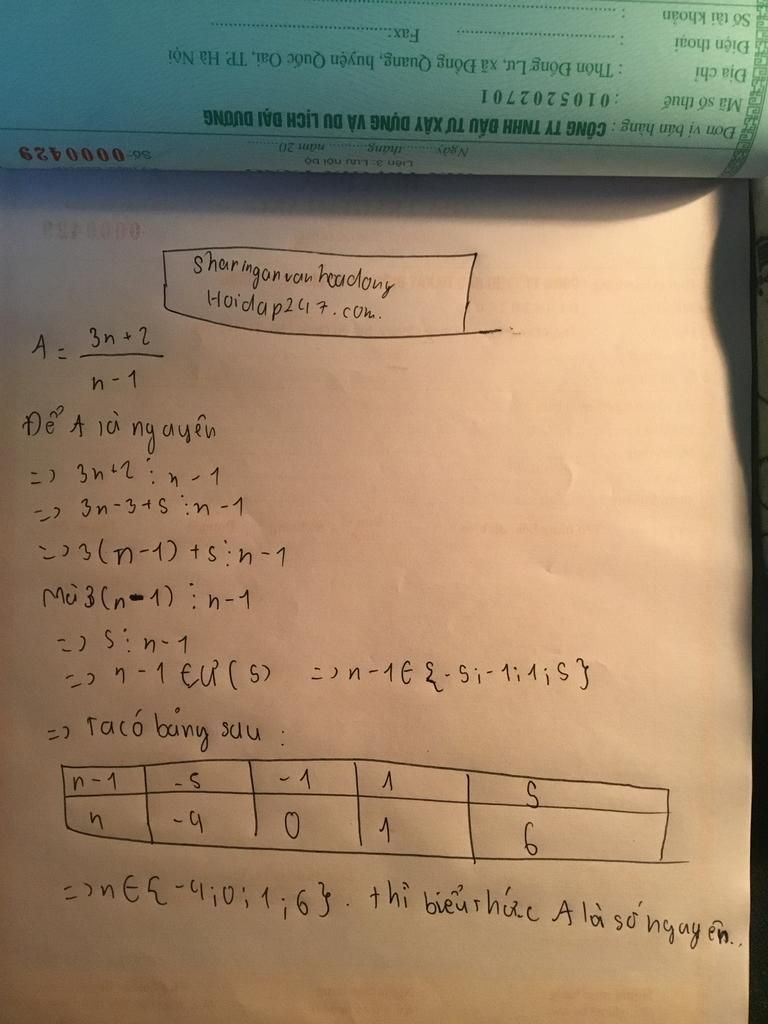 Số tài khoản :
Điện thoại : Fax:
Địa chỉ : Thôn Đồng Lư, xã Đồng Quang, huyện Quốc Oai, TP. Hà Nội
Mã số thuế : 0105202701
Đơn vị bán hàng : CÔNG TY TNHH ĐẦU TƯ XÂY DỰNG VÀ DU LỊCH ĐẠI DƯƠNG
Ngày tháng năm 20
Liên 3: Lưu nội bộ
Số: 0000429
Sharinganvanhoadong
Hoidap247.com.
A = 3n+2 / n-1
Để A là nguyên
=> 3n+2 ⋮ n-1
=> 3n-3+5 ⋮ n-1
=> 3(n-1)+5 ⋮ n-1
Mà 3(n-1) ⋮ n-1
=> 5 ⋮ n-1
=> n-1 ∈ Ư(5) => n-1 ∈ {-5;-1;1;5}
=> Ta có bảng sau :
n-1 -5 -1 1 5
n -4 0 1 6
=> n ∈ {-4;0;1;6}. thì biểu thức A là số nguyên..